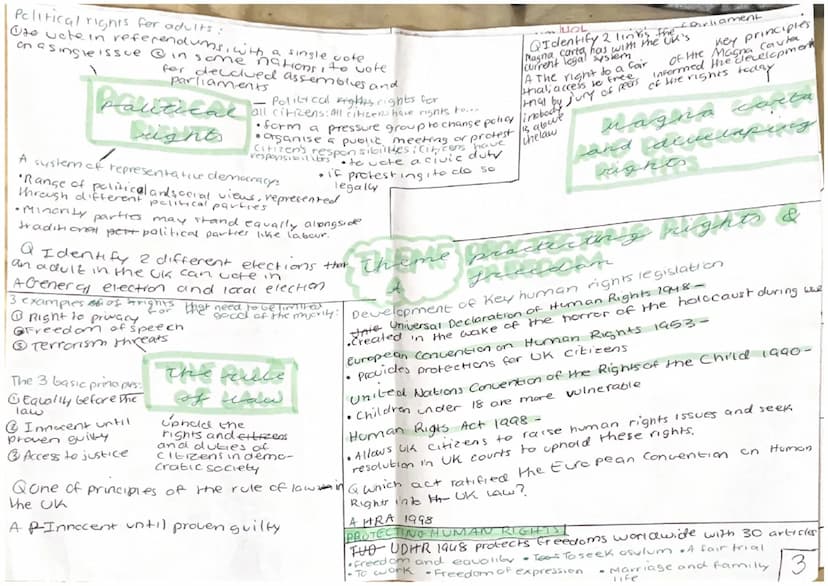 Political rights for adults:
① to vote in referendums, with a single vote
on a single issue ② in some nations, to vote
for devolved assemblies and
parliaments
political
rights
– Political rights rights for
all citizens: All citizens have rights to...
• form a pressure group to change policy
• organise a public meeting or protest
Citizen's responsibilities: citizens have
responsibilities • to vote a civic duty
• if protesting to do so
legally
A system of representative democracy:
• Range of political and social views, represented
through different political parties
• Minority parties may stand equally alongside
traditional political parties like labour.
Q Identify 2 different elections that
an adult in the UK can vote in
A General election and local election
Q Identify 2 links the
Magna carta has with the UK's Parliament
current legal system
A The right to a fair
trial, access to free
trial by jury of peers
nobody
is above
the law
Key principles
of the Magna carta
informed the development
of the rights today
Magna carta
and developing
rights
Theme protecting rights &
A freedom
3 examples of rights that need to be limited
for the good of the majority:
① Right to privacy
② Freedom of speech
③ Terrorism threats
The rule
of law
The 3 basic principles:
① Equality before the
law
② Innocent until
proven guilty
③ Access to justice
uphold the
rights and citizens
and duties of
citizens in demo-
cratic society
Q One of principles of the rule of law in
the UK
A Innocent until proven guilty
Development of key human rights legislation
Universal Declaration of Human Rights 1948 –
• Created in the wake of the horror of the holocaust during
European Convention on Human Rights 1953 –
• Provides protections for UK citizens
United Nations Convention of the Rights of the Child 1990 –
• Children under 18 are more vulnerable
Human Rights Act 1998 –
• Allows UK citizens to raise human rights issues and seek
resolution in UK courts to uphold these rights.
Q Which act ratified the European Convention on Human
Rights into UK law?
A HRA 1998
PROTECTING HUMAN RIGHTS
UDHR 1948 protects freedoms worldwide with 30 articles
• Freedom and equality • To seek asylum • A fair trial
• To work • Freedom of expression • Marriage and family
life
3